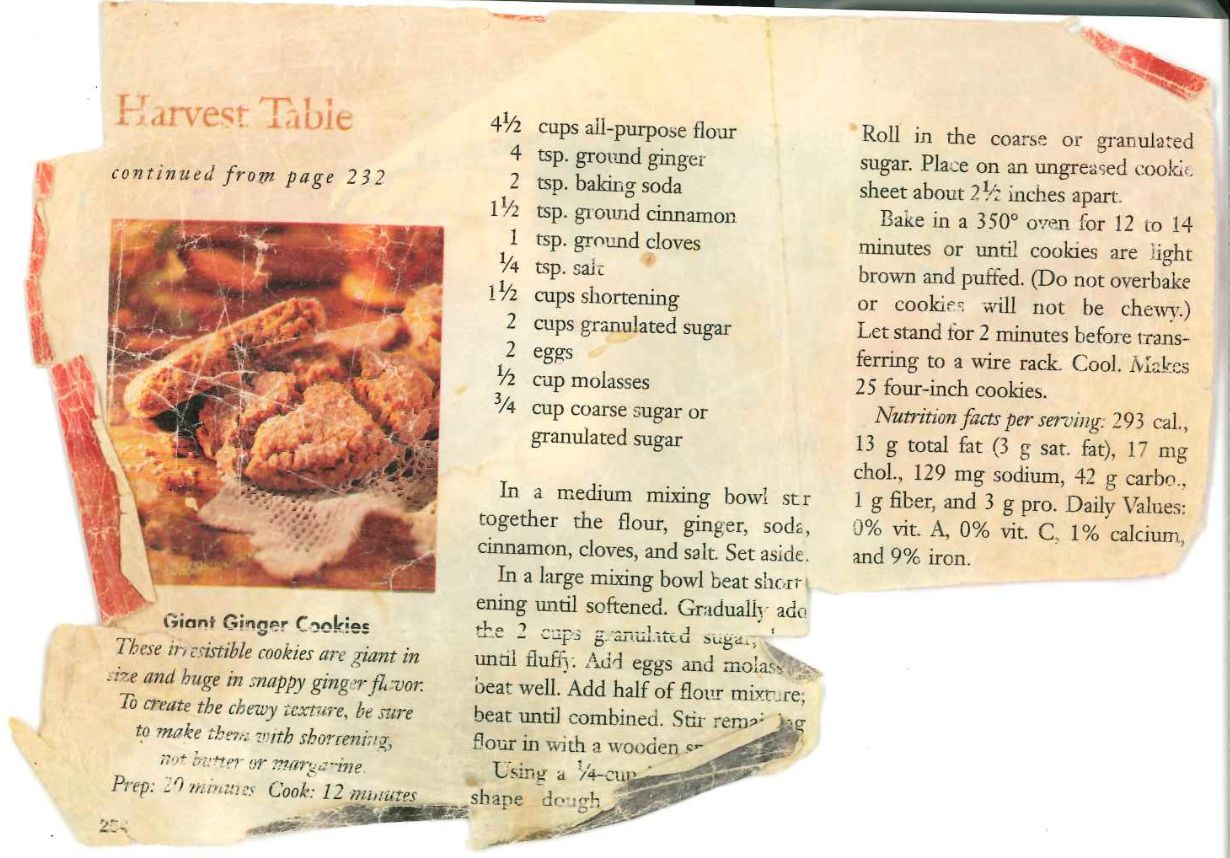 Harvest Table
continued from page 232
Giant Ginger Cookies
These irresistible cookies are giant in
size and huge in snappy ginger flavor.
To create the chewy texture, be sure
to make them with shortening,
not butter or margarine.
Prep: 20 minutes Cook: 12 minutes
4½ cups all-purpose flour
4 tsp. ground ginger
2 tsp. baking soda
1½ tsp. ground cinnamon
1 tsp. ground cloves
¼ tsp. salt
1½ cups shortening
2 cups granulated sugar
2 eggs
½ cup molasses
¾ cup coarse sugar or
granulated sugar
In a medium mixing bowl stir
together the flour, ginger, soda,
cinnamon, cloves, and salt. Set aside.
In a large mixing bowl beat short-
ening until softened. Gradually add
the 2 cups granulated sugar;
until fluffy. Add eggs and molass
beat well. Add half of flour mixture;
beat until combined. Stir remaining
flour in with a wooden sp
Using a ¼-cup
shape dough
Roll in the coarse or granulated
sugar. Place on an ungreased cookie
sheet about 2½ inches apart.
Bake in a 350° oven for 12 to 14
minutes or until cookies are light
brown and puffed. (Do not overbake
or cookies will not be chewy.)
Let stand for 2 minutes before trans-
ferring to a wire rack. Cool. Makes
25 four-inch cookies.
Nutrition facts per serving: 293 cal.,
13 g total fat (3 g sat. fat), 17 mg
chol., 129 mg sodium, 42 g carbo.,
1 g fiber, and 3 g pro. Daily Values:
0% vit. A, 0% vit. C, 1% calcium,
and 9% iron.